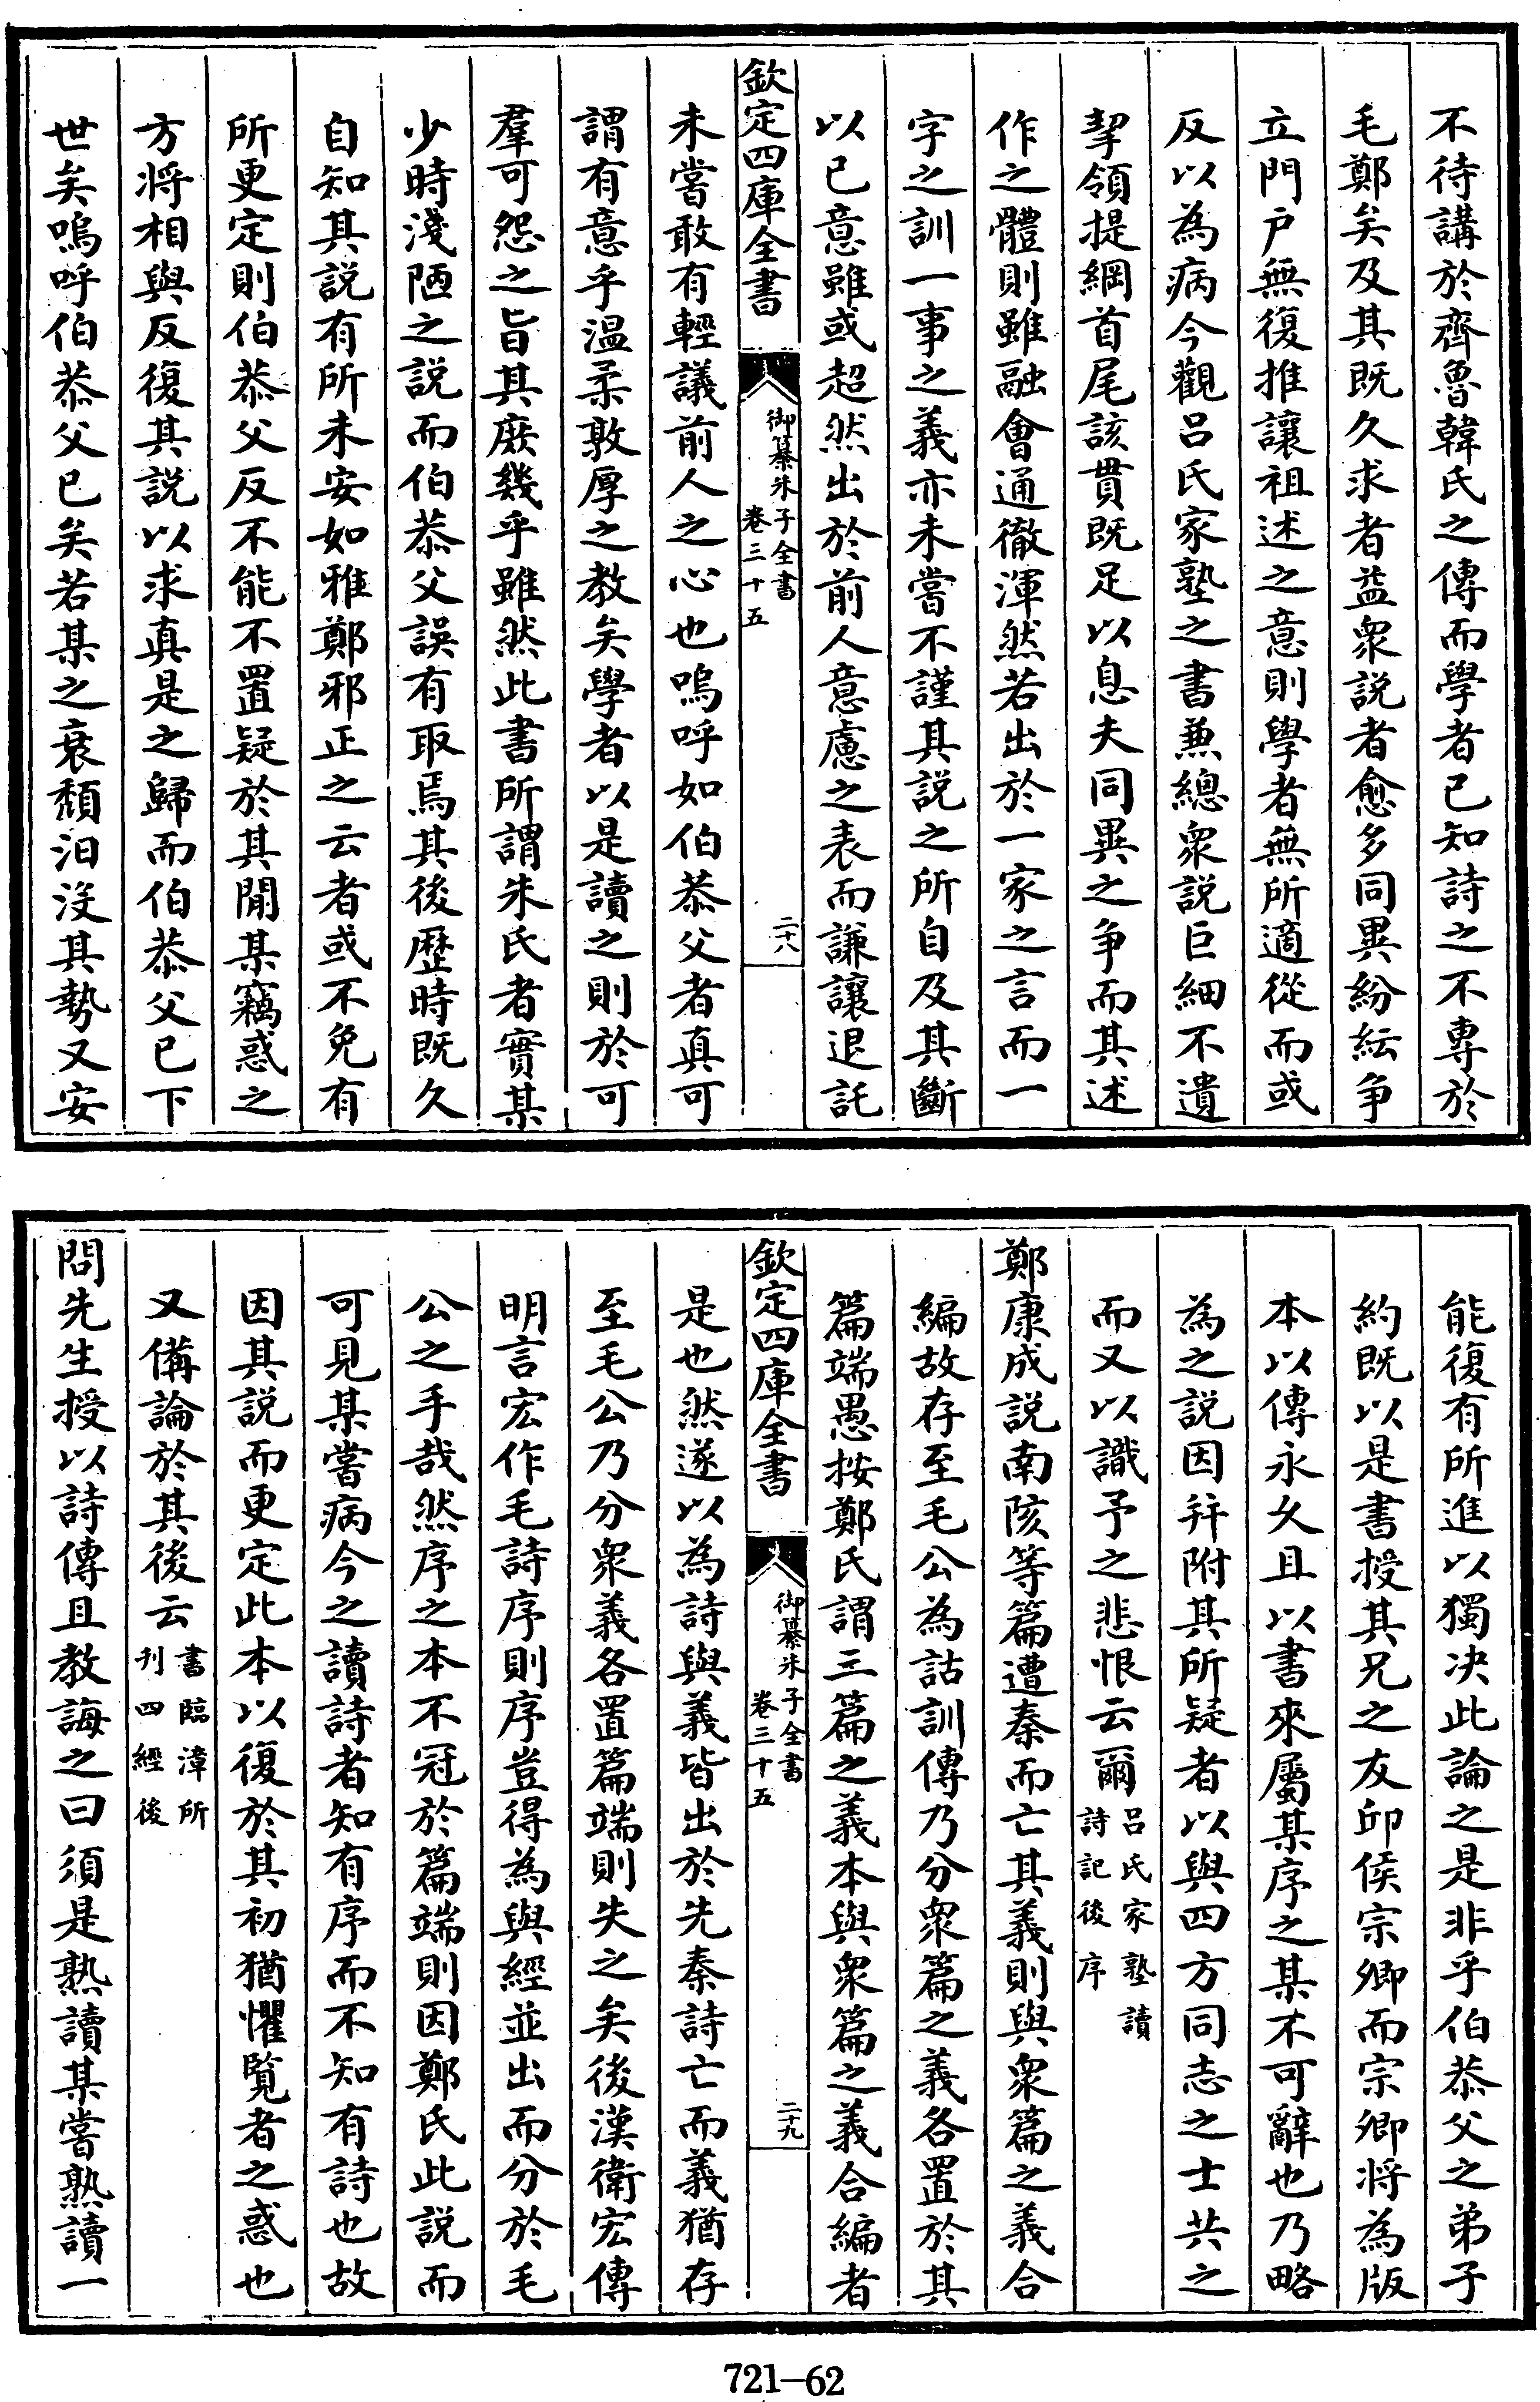 不待講於齊魯韓氏之傳而學者已知詩之不專於
毛鄭矣及其既久求者益衆説者愈多同異紛紜争
立門戸無復推讓祖述之意則學者無所適從而或
反以為病今觀吕氏家塾之書兼總衆説巨細不遺
挈領提綱首尾該貫既足以息夫同異之争而其述
作之體則雖融會通徹渾然若出於一家之言而一
字之訓一事之義亦未嘗不謹其説之所自及其斷
以已意雖或超然出於前人意慮之表而謙讓退託
欽定四庫全書
御纂朱子全書
卷三十五
二十八
未嘗敢有輕議前人之心也嗚呼如伯恭父者真可
謂有意乎温柔敦厚之教矣學者以是讀之則於可
羣可怨之旨其庶幾乎雖然此書所謂朱氏者實某
少時淺陋之説而伯恭父誤有取焉其後歴時既久
自知其説有所未安如雅鄭邪正之云者或不免有
所更定則伯恭父反不能不置疑於其間某竊惑之
方将相與反復其説以求真是之歸而伯恭父已下
世矣嗚呼伯恭父已矣若某之衰頽汨没其勢又安
能復有所進以獨决此論之是非乎伯恭父之弟子
約既以是書授其兄之友邱侯宗卿而宗卿将為版
本以傳永乆且以書來屬某序之某不可辭也乃略
為之説因并附其所疑者以與四方同志之士共之
而又以識予之悲恨云爾吕氏家塾讀
詩記後序
鄭康成説南陔等篇遭秦而亡其義則與衆篇之義合
編故存至毛公為詁訓傳乃分衆篇之義各置於其
篇端愚按鄭氏謂三篇之義本與衆篇之義合編者
欽定四庫全書
御纂朱子全書
卷三十五
二十九
是也然遂以為詩與義皆出於先秦詩亡而義猶存
至毛公乃分衆義各置篇端則失之矣後漢衛宏傳
明言宏作毛詩序則序豈得為與經並出而分於毛
公之手哉然序之本不冠於篇端則因鄭氏此説而
可見某嘗病今之讀詩者知有序而不知有詩也故
因其説而更定此本以復於其初猶懼覽者之惑也
又備論於其後云書臨漳所
刋四經後
問先生授以詩傳且教誨之曰須是熟讀某嘗熟讀一
721-62